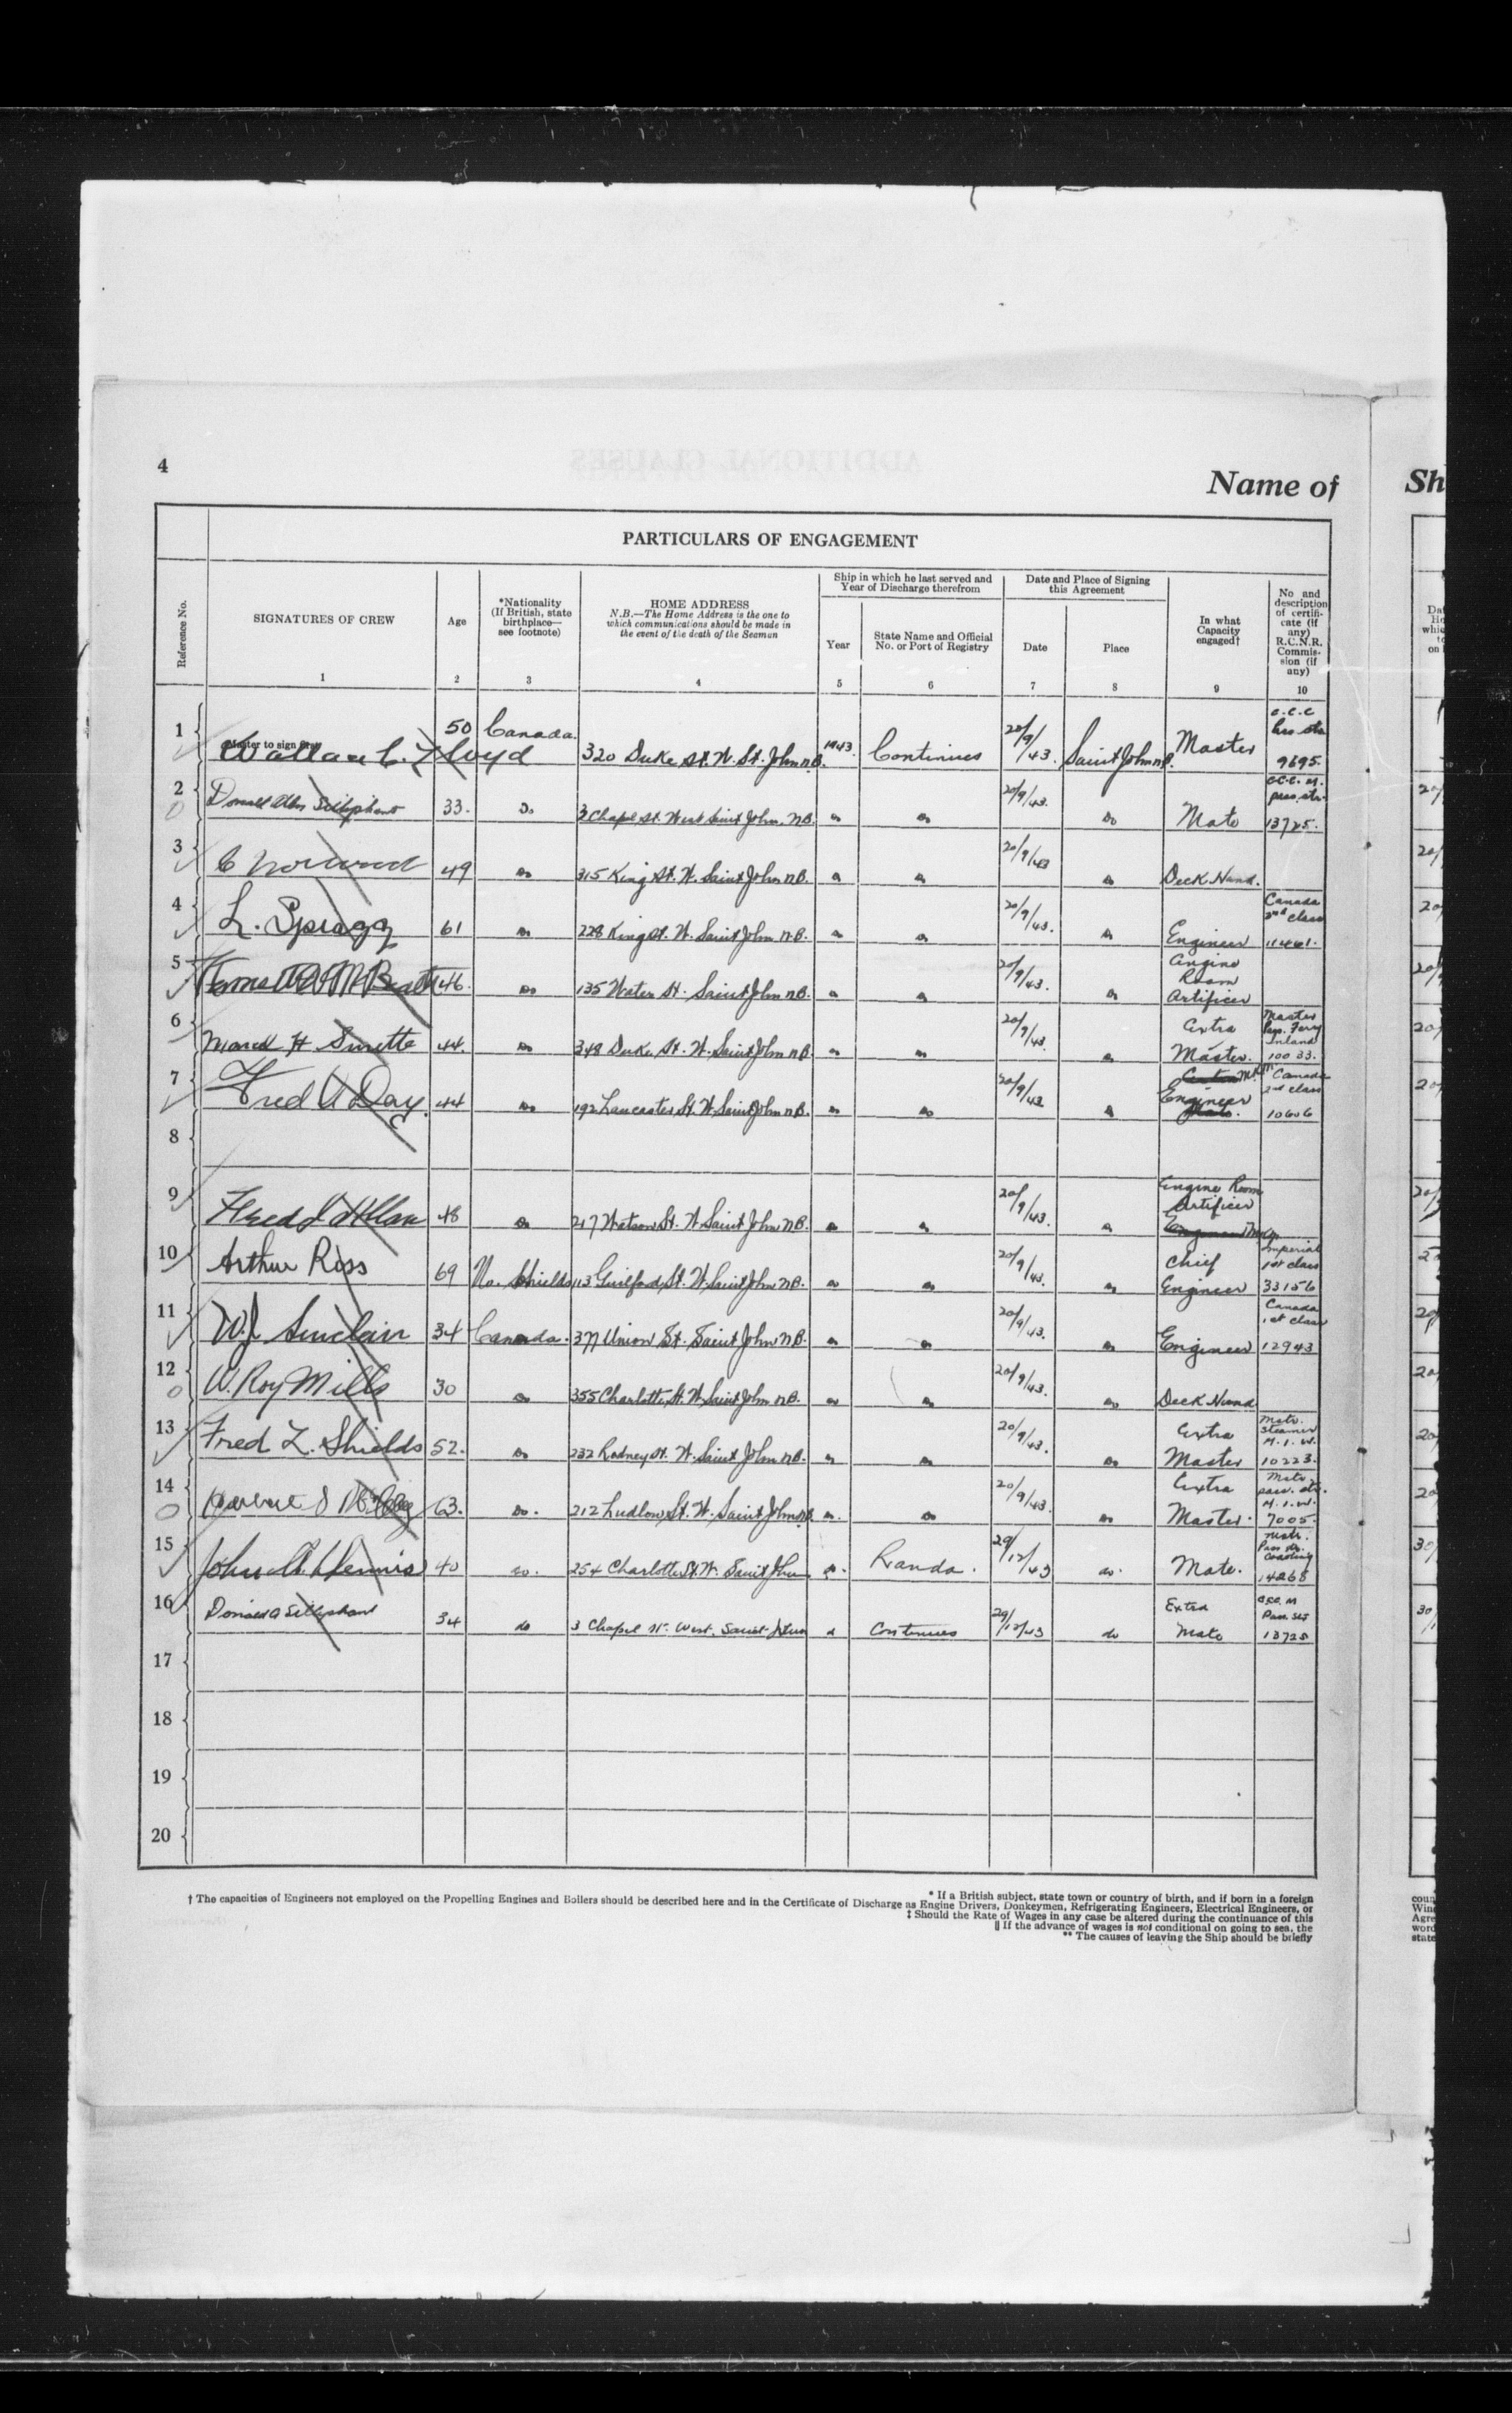 4
Name of
Sh
PARTICULARS OF ENGAGEMENT
Reference No.
SIGNATURES OF CREW
Age
*Nationality
(If British, state
birthplace—
see footnote)
HOME ADDRESS
N.B.—The Home Address is the one to
which communications should be made in
the event of the death of the Seaman
Ship in which he last served and
Year of Discharge therefrom
Year
State Name and Official
No. or Port of Registry
Date and Place of Signing
this Agreement
Date
Place
In what
Capacity
engaged†
No and
description
of certifi-
cate (if
any)
R.C.N.R.
Commis-
sion (if
any)
1 2 3 4 5 6 7 8 9 10
1 Master to sign first Wallace C. Floyd 50 Canada. 320 Duke St. W. St. John N.B. 1943. Continues 20/9/43. Saint John N.B. Master C.C.C 9695.
2 33. Do 3 Chapel St. West Saint John. N.B. Do Do 20/9/43. Do Mate C.C.C. M. pass. str. 13725.
3 C Norwood 49 Do 315 King St. W. Saint John N.B. Do Do 20/9/43 Do Deck Hand.
4 L. Spragg 61 Do 228 King St. W. Saint John N.B. Do Do 20/9/43. Do Engineer Canada 2nd class 11461.
5 46. Do 135 Water St. Saint John N.B. Do Do 20/9/43. Do Engine Room Artificer
6 H Surette 44. Do 348 Duke St. W. Saint John N.B. Do Do 20/9/43. Do Extra Master. Master Pass. Ferry Inland 10033.
7 Fred A Day. 44 Do 192 Lancaster St. W. Saint John N.B. Do Do 20/9/43 Do Engineer Canada 2nd class 10606
8
9 Fred J Allan 48 Do 217 Watson St. W. Saint John N.B. Do Do 20/9/43. Do Engine Room Artificer
10 Arthur Ross 69 No. Shields 113 Guilford St. W. Saint John N.B. Do Do 20/9/43. Do Chief Engineer Imperial 1st class 33156
11 W.J. Sinclair 34 Canada. 377 Union St. Saint John N.B. Do Do 20/9/43. Do Engineer Canada 1st class 12943
12 W. Roy Mills 30 Do 355 Charlotte St. W. Saint John N.B. Do Do 20/9/43. Do Deck Hand
13 Fred L. Shields 52. Do 232 Rodney St. W. Saint John N.B. Do Do 20/9/43. Do Extra Master Mate. Steamer M.I.W. 10223.
14 63. Do. 212 Ludlow St. W. Saint John N.B. Do. Do 20/9/43. Do Extra Master. Mate pass. str. M.I.W. 7005.
15 John A. Dennis 40 Do. 254 Charlotte St. W. Saint John Do. Randa. 29/12/43 Do. Mate. Mate. Pass Str. Coasting 14268
16 Donald A Selliphant 34 do 3 Chapel St. West. Saint John do Continues 29/12/43 do Extra Mate C.C.C. M Pass. Str 13725
17
18
19
20
* If a British subject, state town or country of birth, and if born in a foreign
† The capacities of Engineers not employed on the Propelling Engines and Boilers should be described here and in the Certificate of Discharge as Engine Drivers, Donkeymen, Refrigerating Engineers, Electrical Engineers, or
‡ Should the Rate of Wages in any case be altered during the continuance of this
|| If the advance of wages is not conditional on going to sea, the
** The causes of leaving the Ship should be briefly